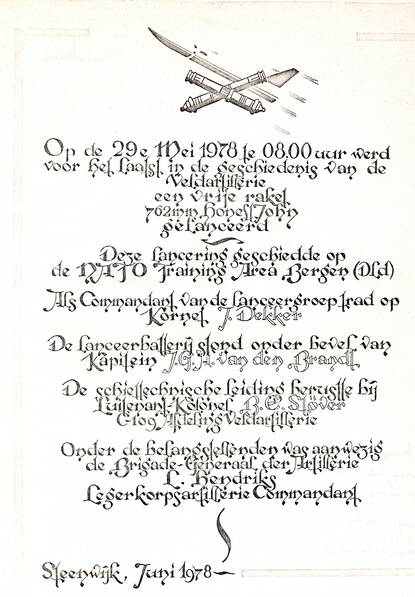 Op de 29e Mei 1978 te 08.00 uur werd
voor het laatst in de geschiedenis van de
Veldartillerie
een vrije raket
762mm. Honest John
gelanceerd
Deze lancering geschiedde op
de NATO Training Area Bergen (Dld)
Als Commandant van de lanceergroep trad op
Kornet J. Dekker
De lanceerbatterij stond onder bevel van
Kapitein J.G.A. van den Brandt
De schiettechnische leiding berustte bij
Luitenant-Kolonel B.E. Stöver
C-109 Afdeling Veldartillerie
Onder de belangstellenden was aanwezig
de Brigade-Generaal der Artillerie
L. Hendriks
Legerkorpsartillerie Commandant
Steenwijk, Juni 1978